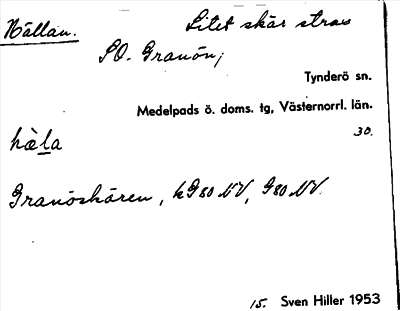 Hällan. Litet skär strax
SO. Granön;
Tynderö sn.
Medelpads ö. doms. tg, Västernorrl. län.
30.
hàla
Granöskären, kG80 NV, G80 NV.
15. Sven Hiller 1953